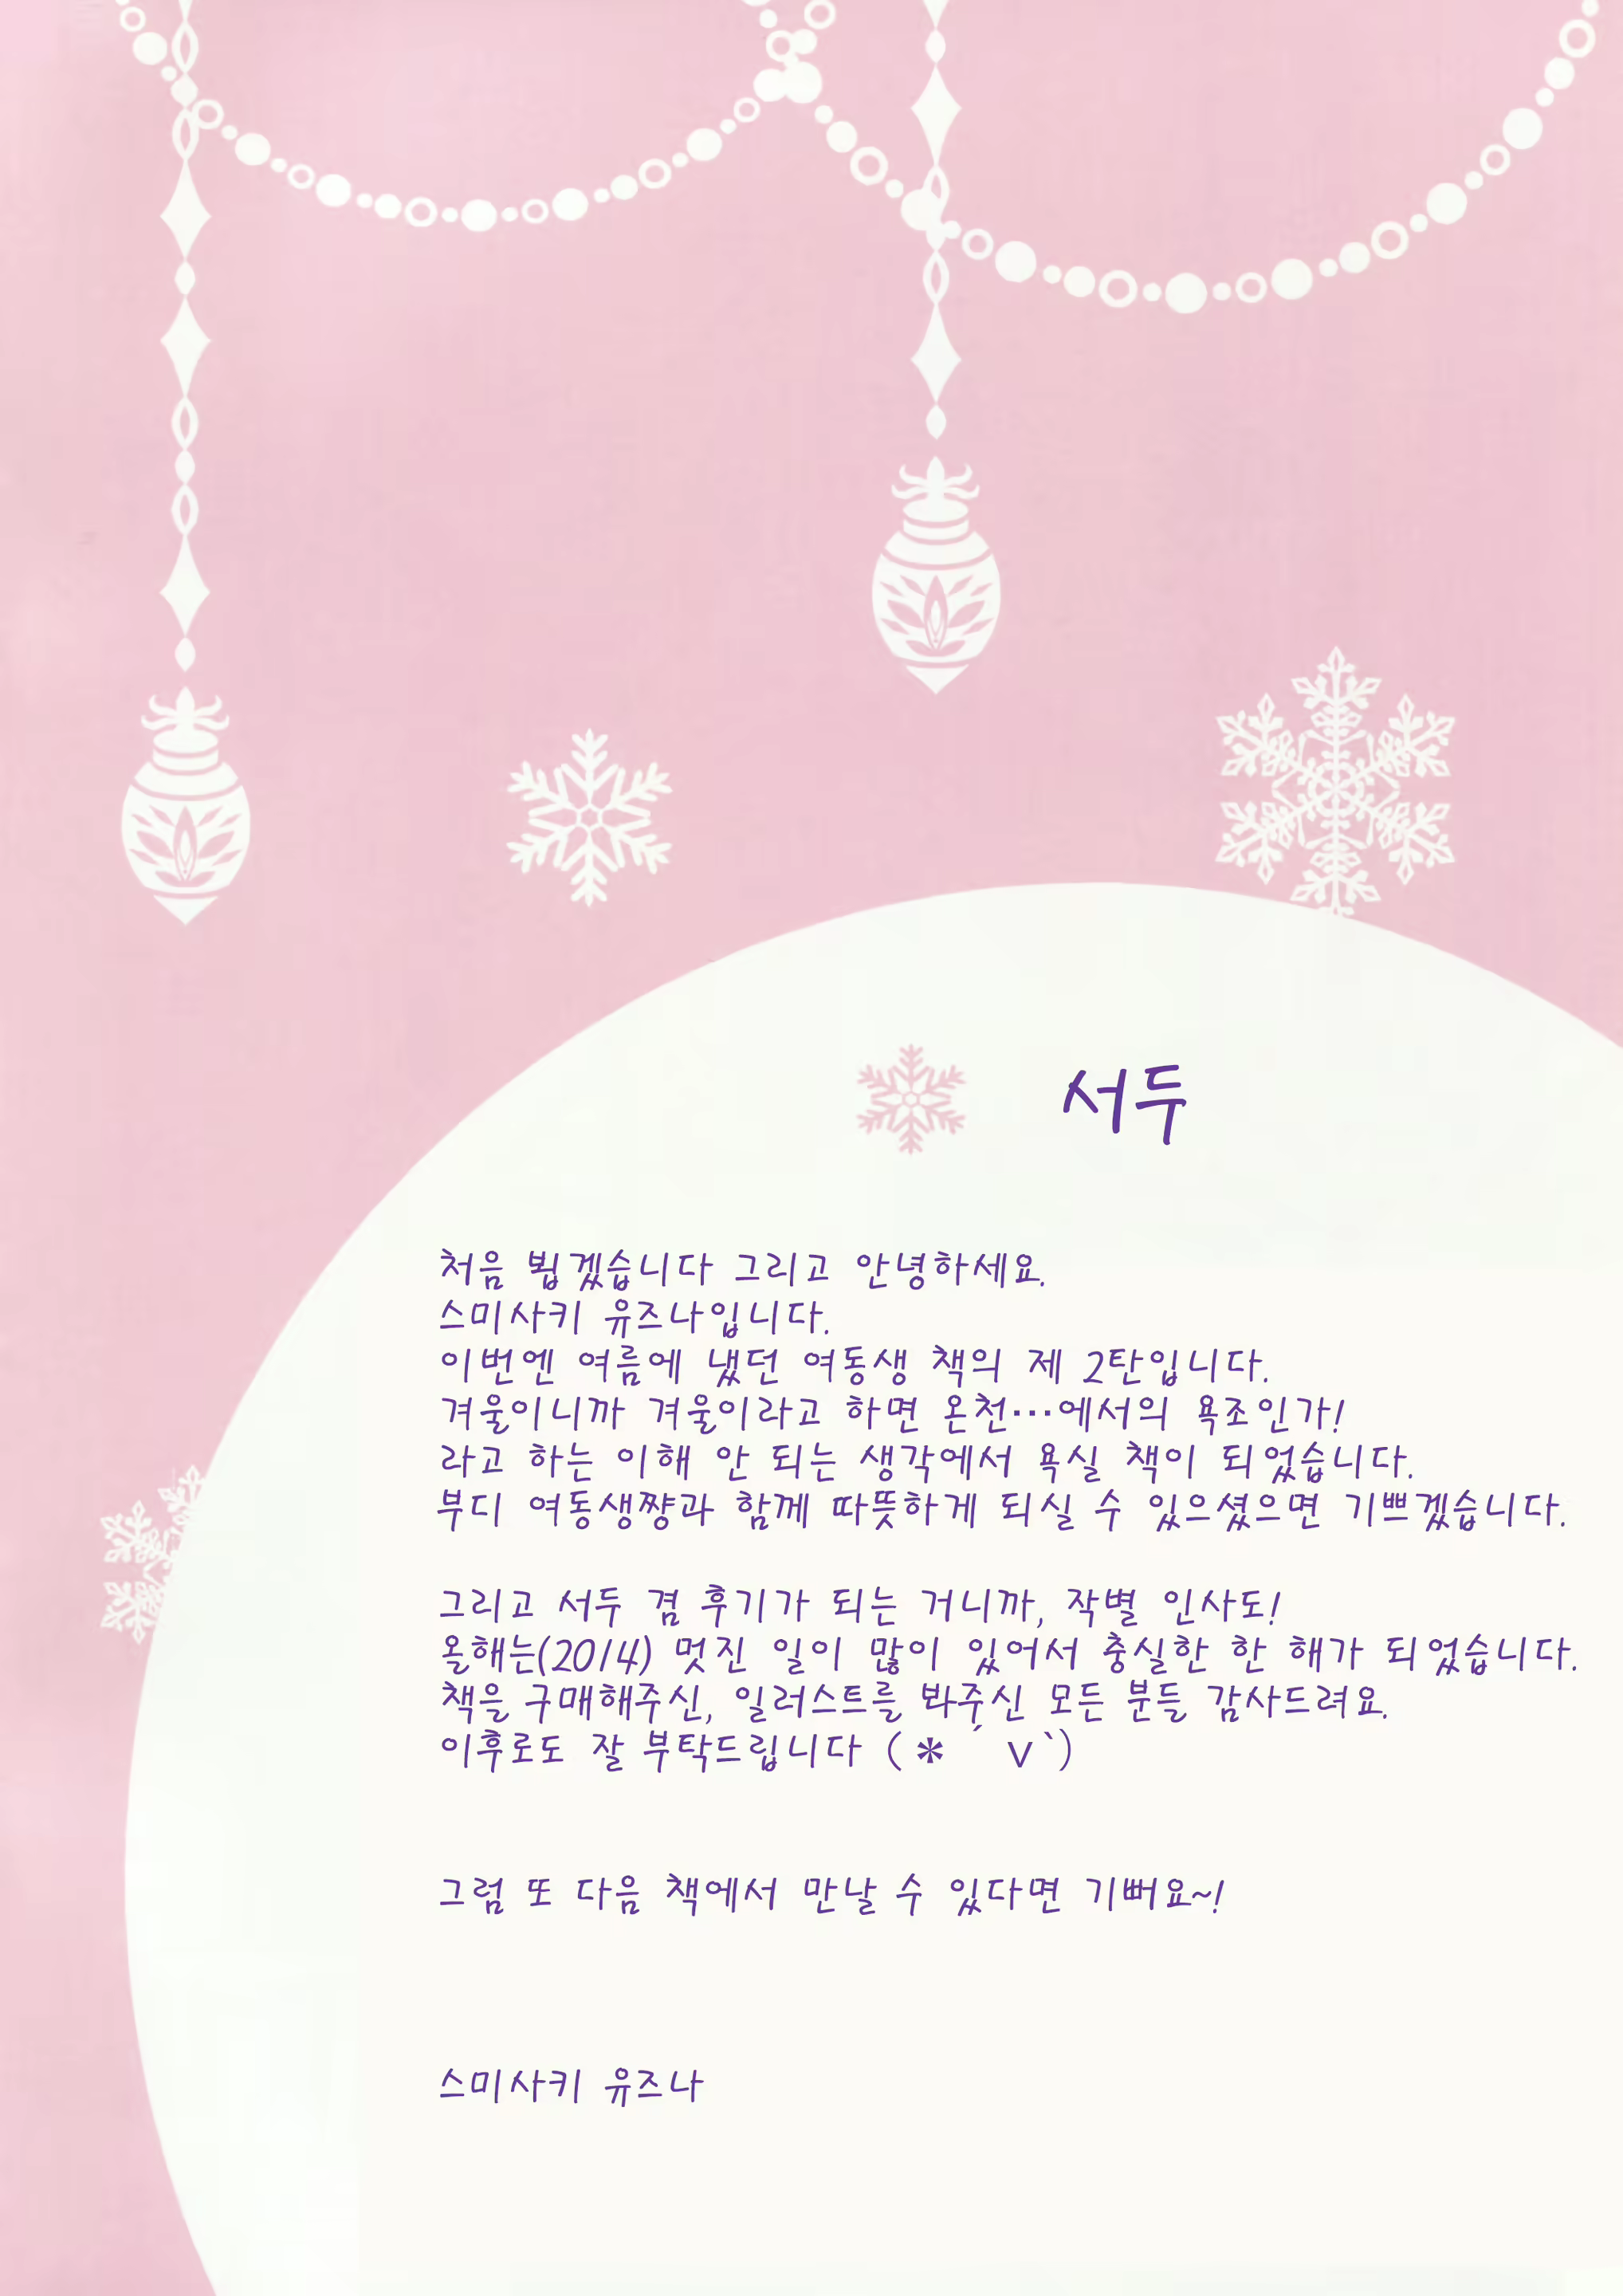 서두
처음 뵙겠습니다 그리고 안녕하세요.
스미사키 유즈나입니다.
이번엔 여름에 냈던 여동생 책의 제 2탄입니다.
겨울이니까 겨울이라고 하면 온천…에서의 욕조인가!
라고 하는 이해 안 되는 생각에서 욕실 책이 되었습니다.
부디 여동생쨩과 함께 따뜻하게 되실 수 있으셨으면 기쁘겠습니다.
그리고 서두 겸 후기가 되는 거니까, 작별 인사도!
올해는(2014) 멋진 일이 많이 있어서 충실한 한 해가 되었습니다.
책을 구매해주신, 일러스트를 봐주신 모든 분들 감사드려요.
이후로도 잘 부탁드립니다 (* ´ ∨`)
그럼 또 다음 책에서 만날 수 있다면 기뻐요~!
스미사키 유즈나